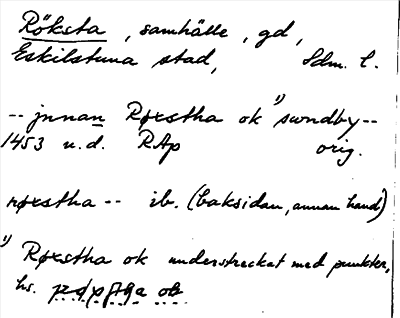 Röksta, samhälle, gd,
Eskilstuna stad, Sdm. l.
-- jnnan Røxstha ok ¹) swndby --
1453 u.d. RAp orig.
røxstha -- ib. (baksidan, annan hand)
¹) Røxstha ok understreckat med punkter,
hs.